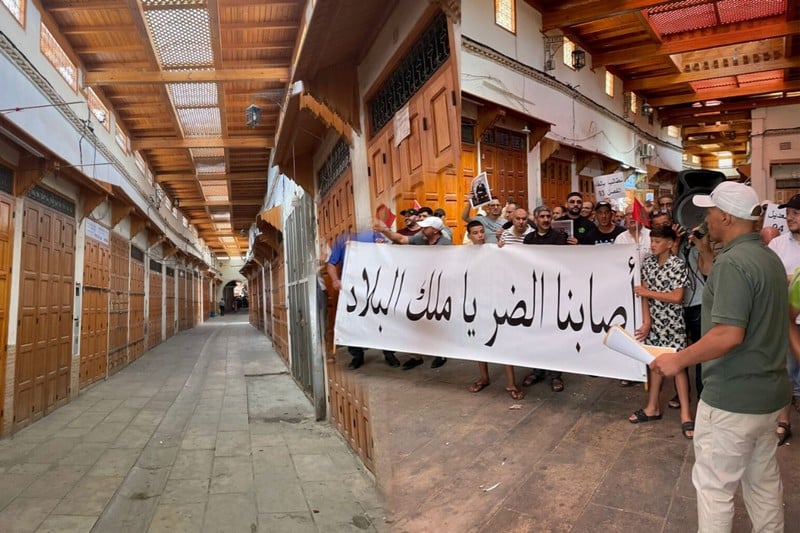 أصابنا الضر يا ملك البلاد